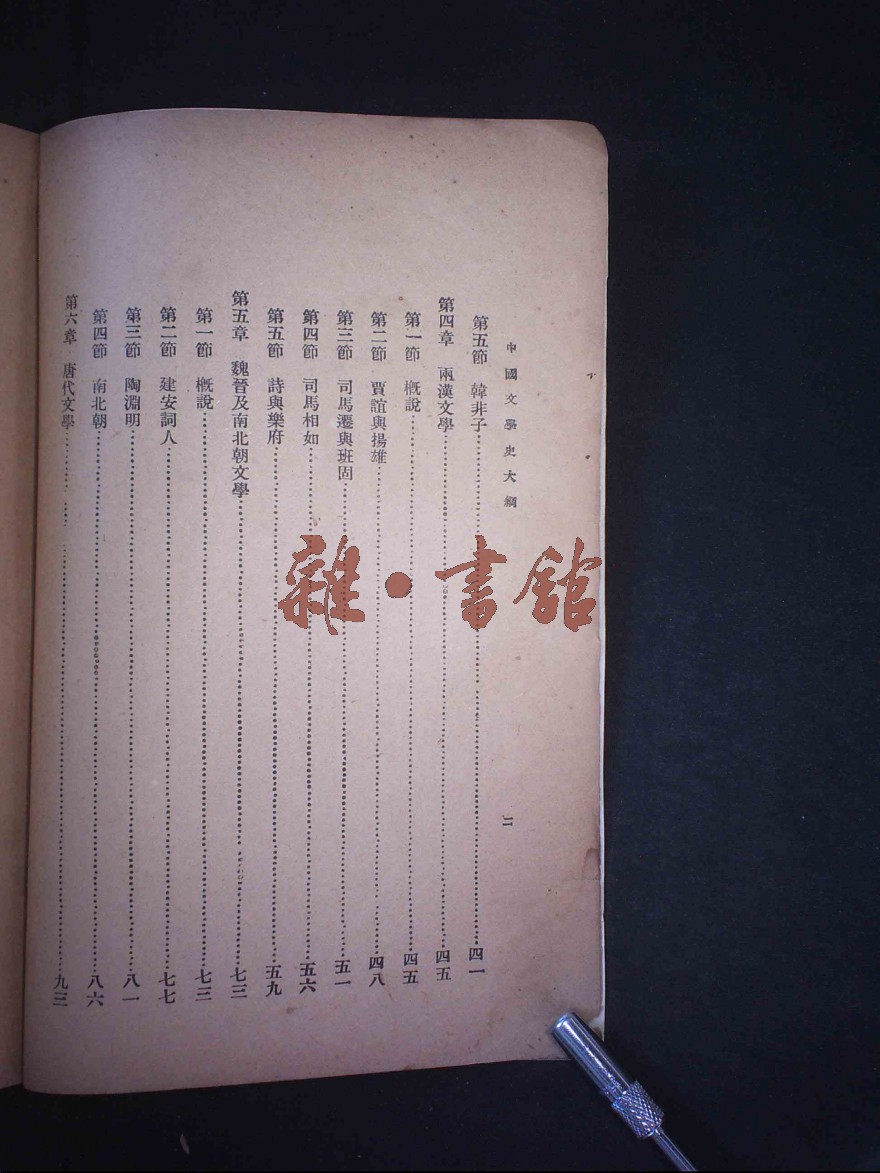 中國文學史大綱
二
第五節 韓非子……四一
第四章 兩漢文學……四五
第一節 概說……四五
第二節 賈誼與揚雄……四八
第三節 司馬遷與班固……五一
第四節 司馬相如……五六
第五節 詩與樂府……五九
第五章 魏晉及南北朝文學……七三
第一節 概說……七三
第二節 建安詞人……七七
第三節 陶淵明……八一
第四節 南北朝……八六
第六章 唐代文學……九三
雜·書館